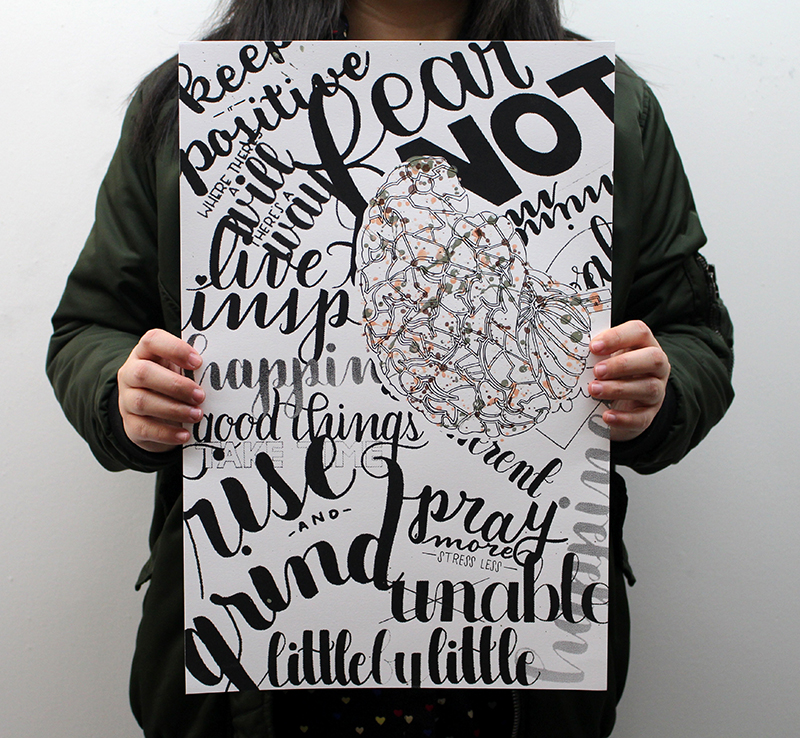 keep
positive
fear
NOT
WHERE THERE'S
A
will
THERE'S A
way
live
insp
happin
good things
TAKE TIME
rise
-AND-
grind
pray
more
STRESS LESS
unable
little by little
happine